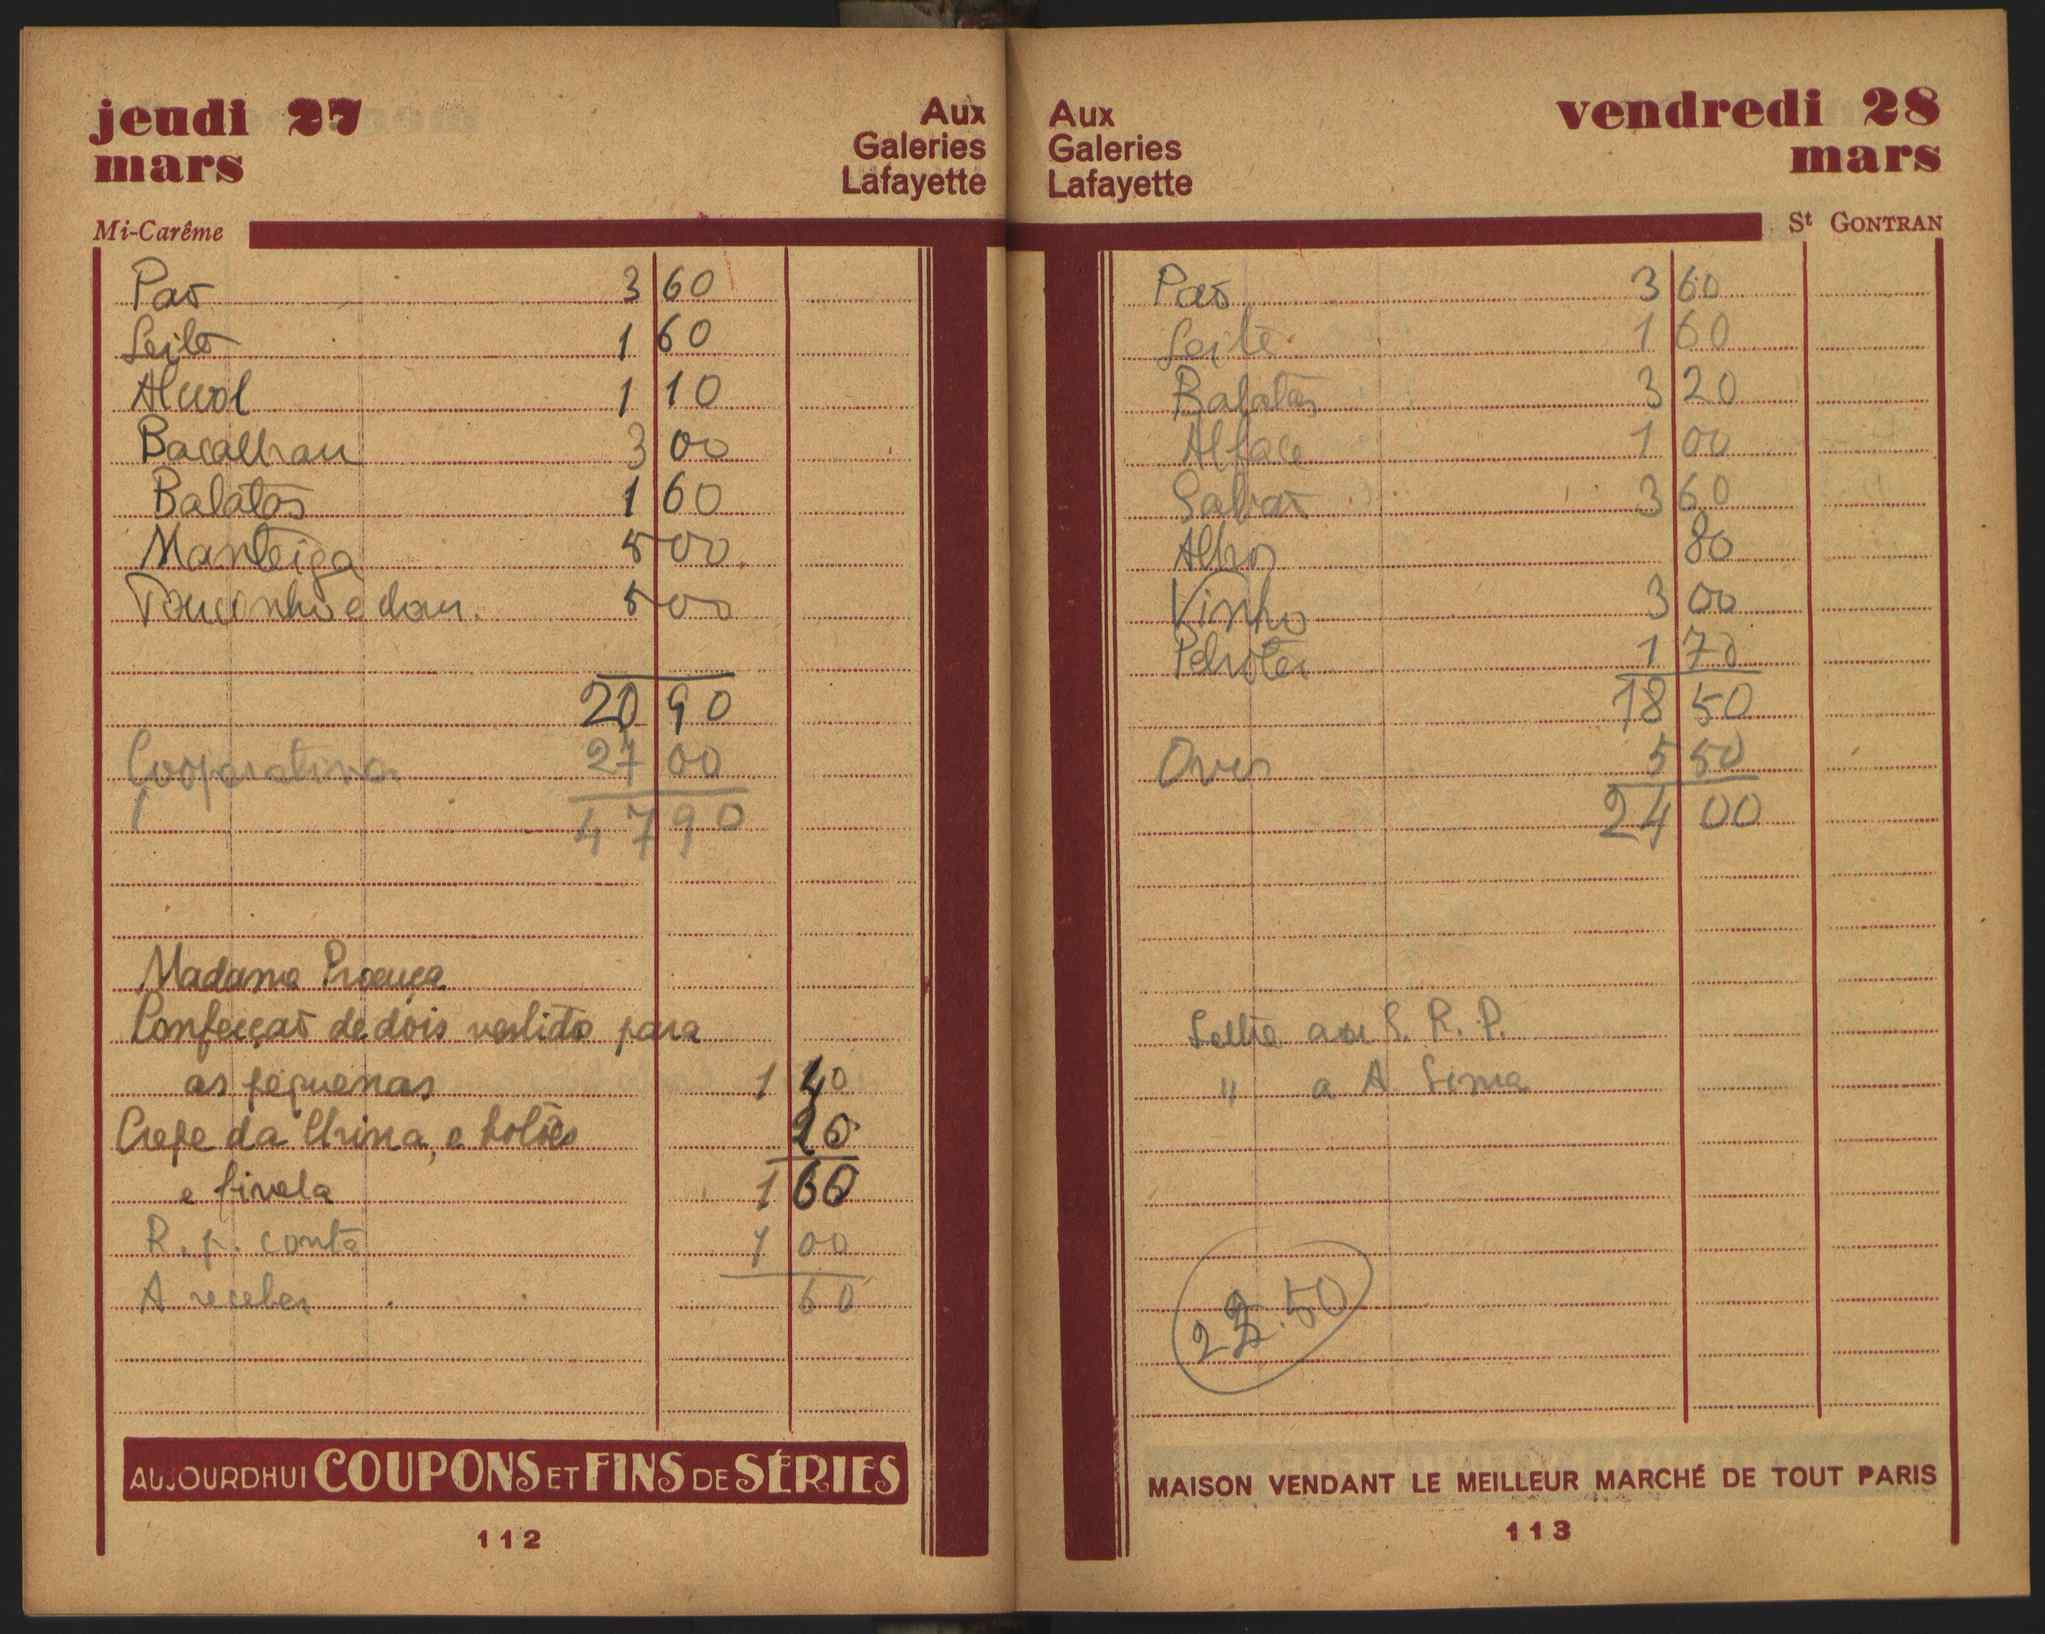 jeudi 27
mars
Aux
Galeries
Lafayette
Mi-Carême
Pão 3 60
Leite 1 60
Alcool 1 10
Bacalhau 3 00
Batatas 1 60
Manteiga 5 00
Toucinho e 5 00
20 90
Cooperativa 27 00
47 90
Madame Proença
Confecção de dois vestido para
as pequenas 1 40
Crepe da China, e botões 20
e fivela 1 60
R. p. conta 1 00
A receber 60
AUJOURDHUI COUPONS ET FINS DE SÉRIES
112
Aux
Galeries
Lafayette
vendredi 28
mars
St GONTRAN
Pão 3 60
Leite 1 60
Batatas 3 20
Alface 1 00
Sabão 3 60
Alhos 80
Vinho 3 00
1 70
18 50
Ovos 5 50
24 00
S. R. P.
" a A Lima
.50
MAISON VENDANT LE MEILLEUR MARCHÉ DE TOUT PARIS
113